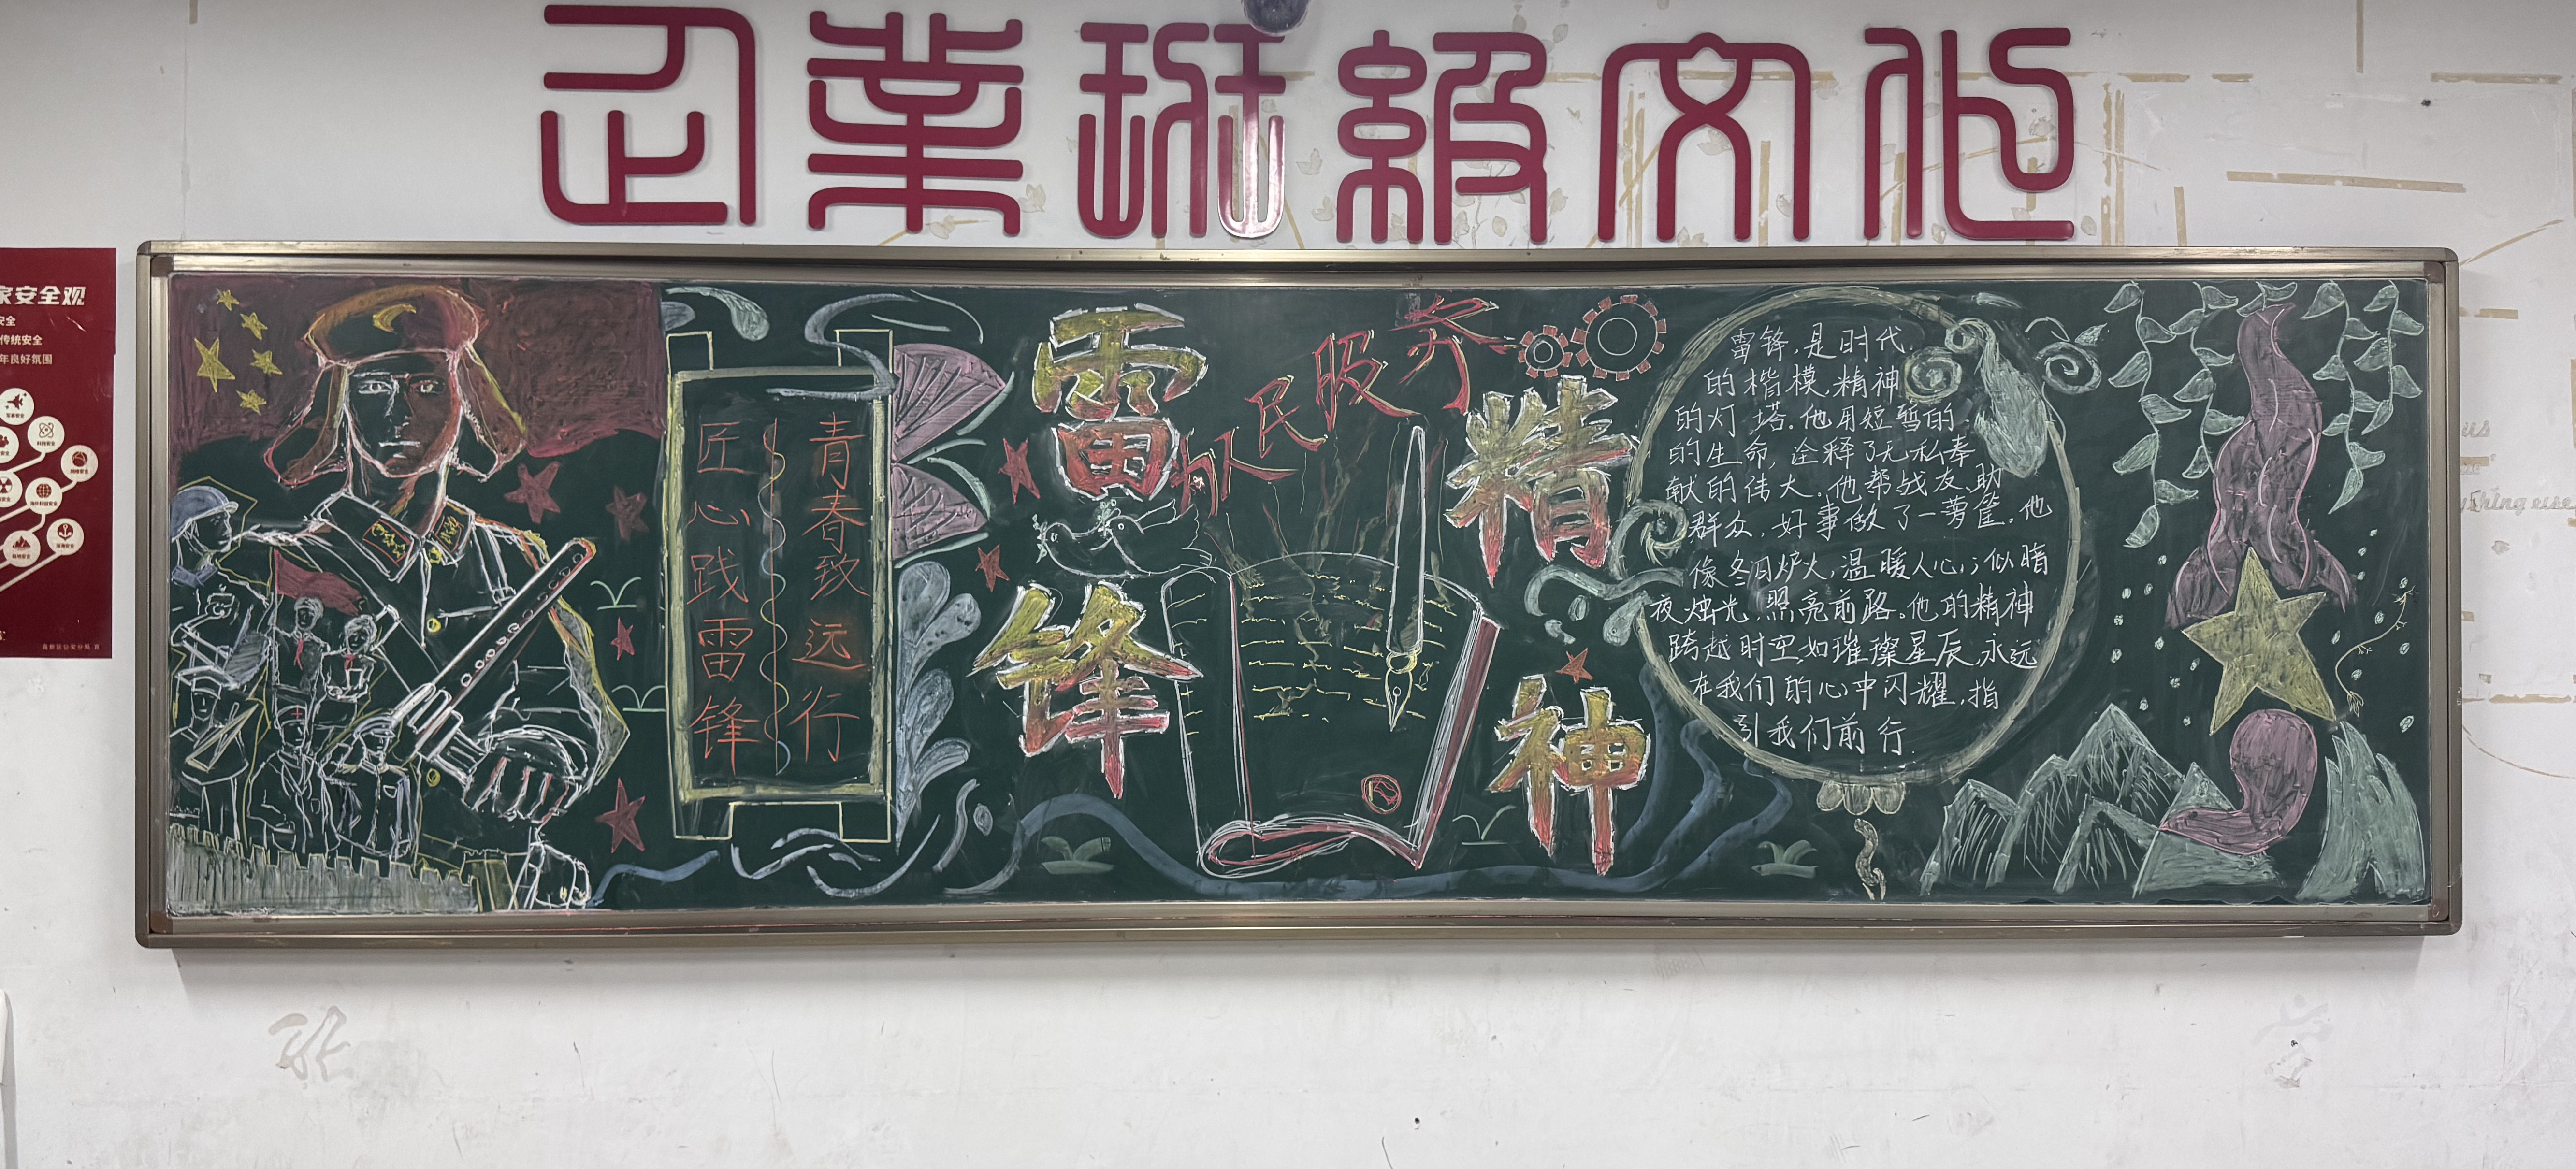 企業班級文化
家安全观
安全
传统安全
年良好氛围
匠心践雷锋
青春致远行
雷锋
精神
人民服务
雷锋,是时代
的楷模,精神
的灯塔.他用短暂的
的生命,诠释了无私奉
献的伟大.他帮战友、助
群众,好事做了一萝筐.他
像冬日炉火,温暖人心;似暗
夜烛光,照亮前路.他的精神
跨越时空,如璀璨星辰,永远
在我们的心中闪耀,指
引我们前行.